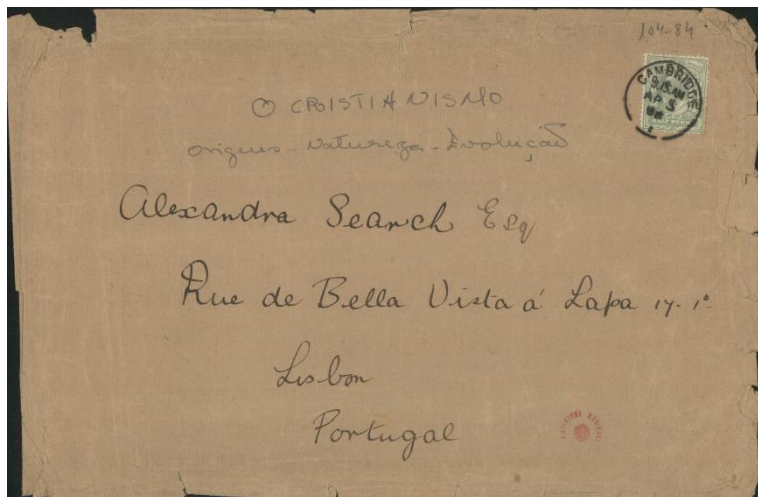 104-84
CAMBRIDGE
9.15 AM
AP 3
HALF PENNY
O CRISTIANISMO
origens - Natureza - Evolução
Alexandra Search Esq
Rue de Bella Vista á Lapa 17-1º
Lisbon
Portugal